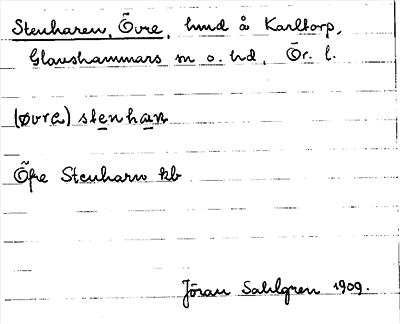 Stenharen, Övre, hmd å Karltorp,
Glanshammars sn o. hd, Ör. l.
(øvrə) stenharn
Öfre Stenharn kb
Jöran Sahlgren 1909.